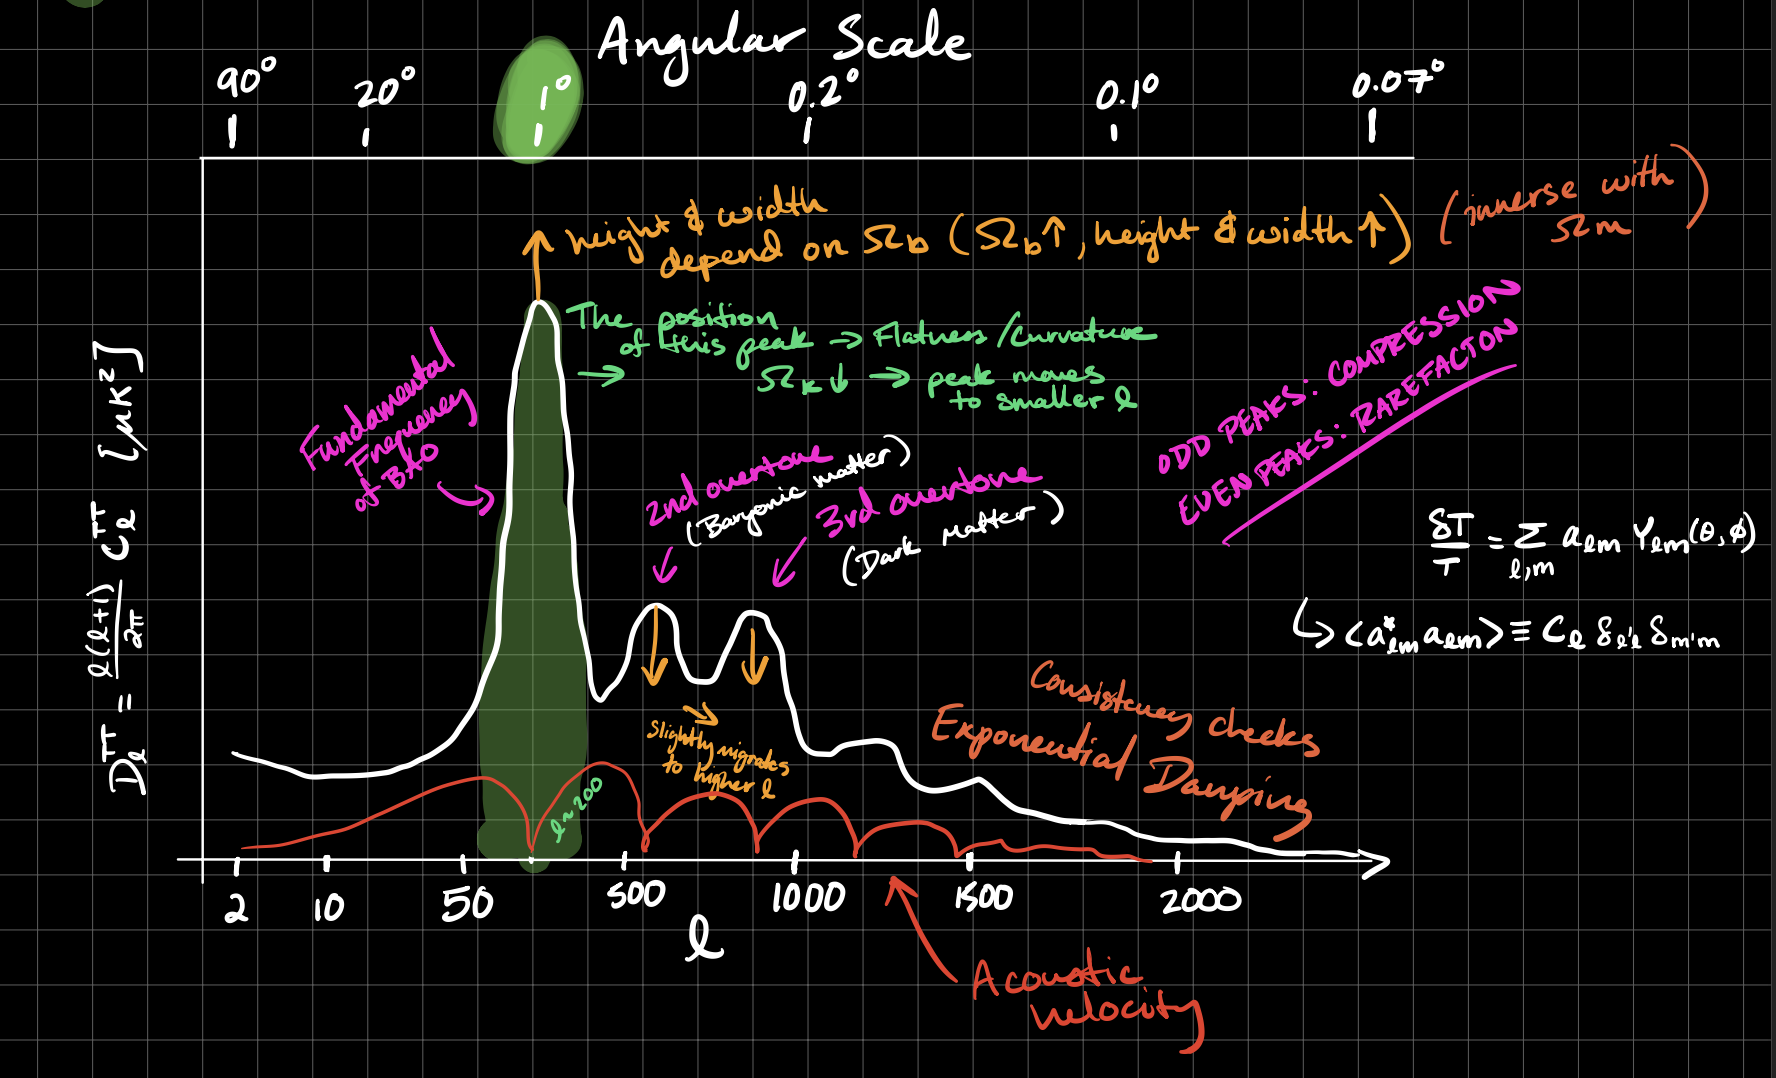 Angular Scale
90° 20° 1° 0.2° 0.1° 0.07°
height & width
depend on Ωb (Ωb↑, height & width ↑)
(inverse with
Ωm)
The position
of this peak → Flatness/Curvature
→ Ωk↓ → peak moves
to smaller l
Fundamental
Frequency
of BAO
2nd overtone
(Baryonic matter)
3rd overtone
(Dark Matter)
ODD PEAKS: COMPRESSION
EVEN PEAKS: RAREFACTON
δT/T = Σ_{l,m} a_{lm} Y_{lm}(θ,φ)
↳ <a*_{lm} a_{lm}> ≡ C_l δ_{l'l} δ_{m'm}
D_l^{TT} = l(l+1)/2π C_l^{TT} [μK²]
Slightly migrates
to higher l
l~200
Consistency checks
Exponential
Damping
2 10 50 500 1000 1500 2000
l
Acoustic
velocity